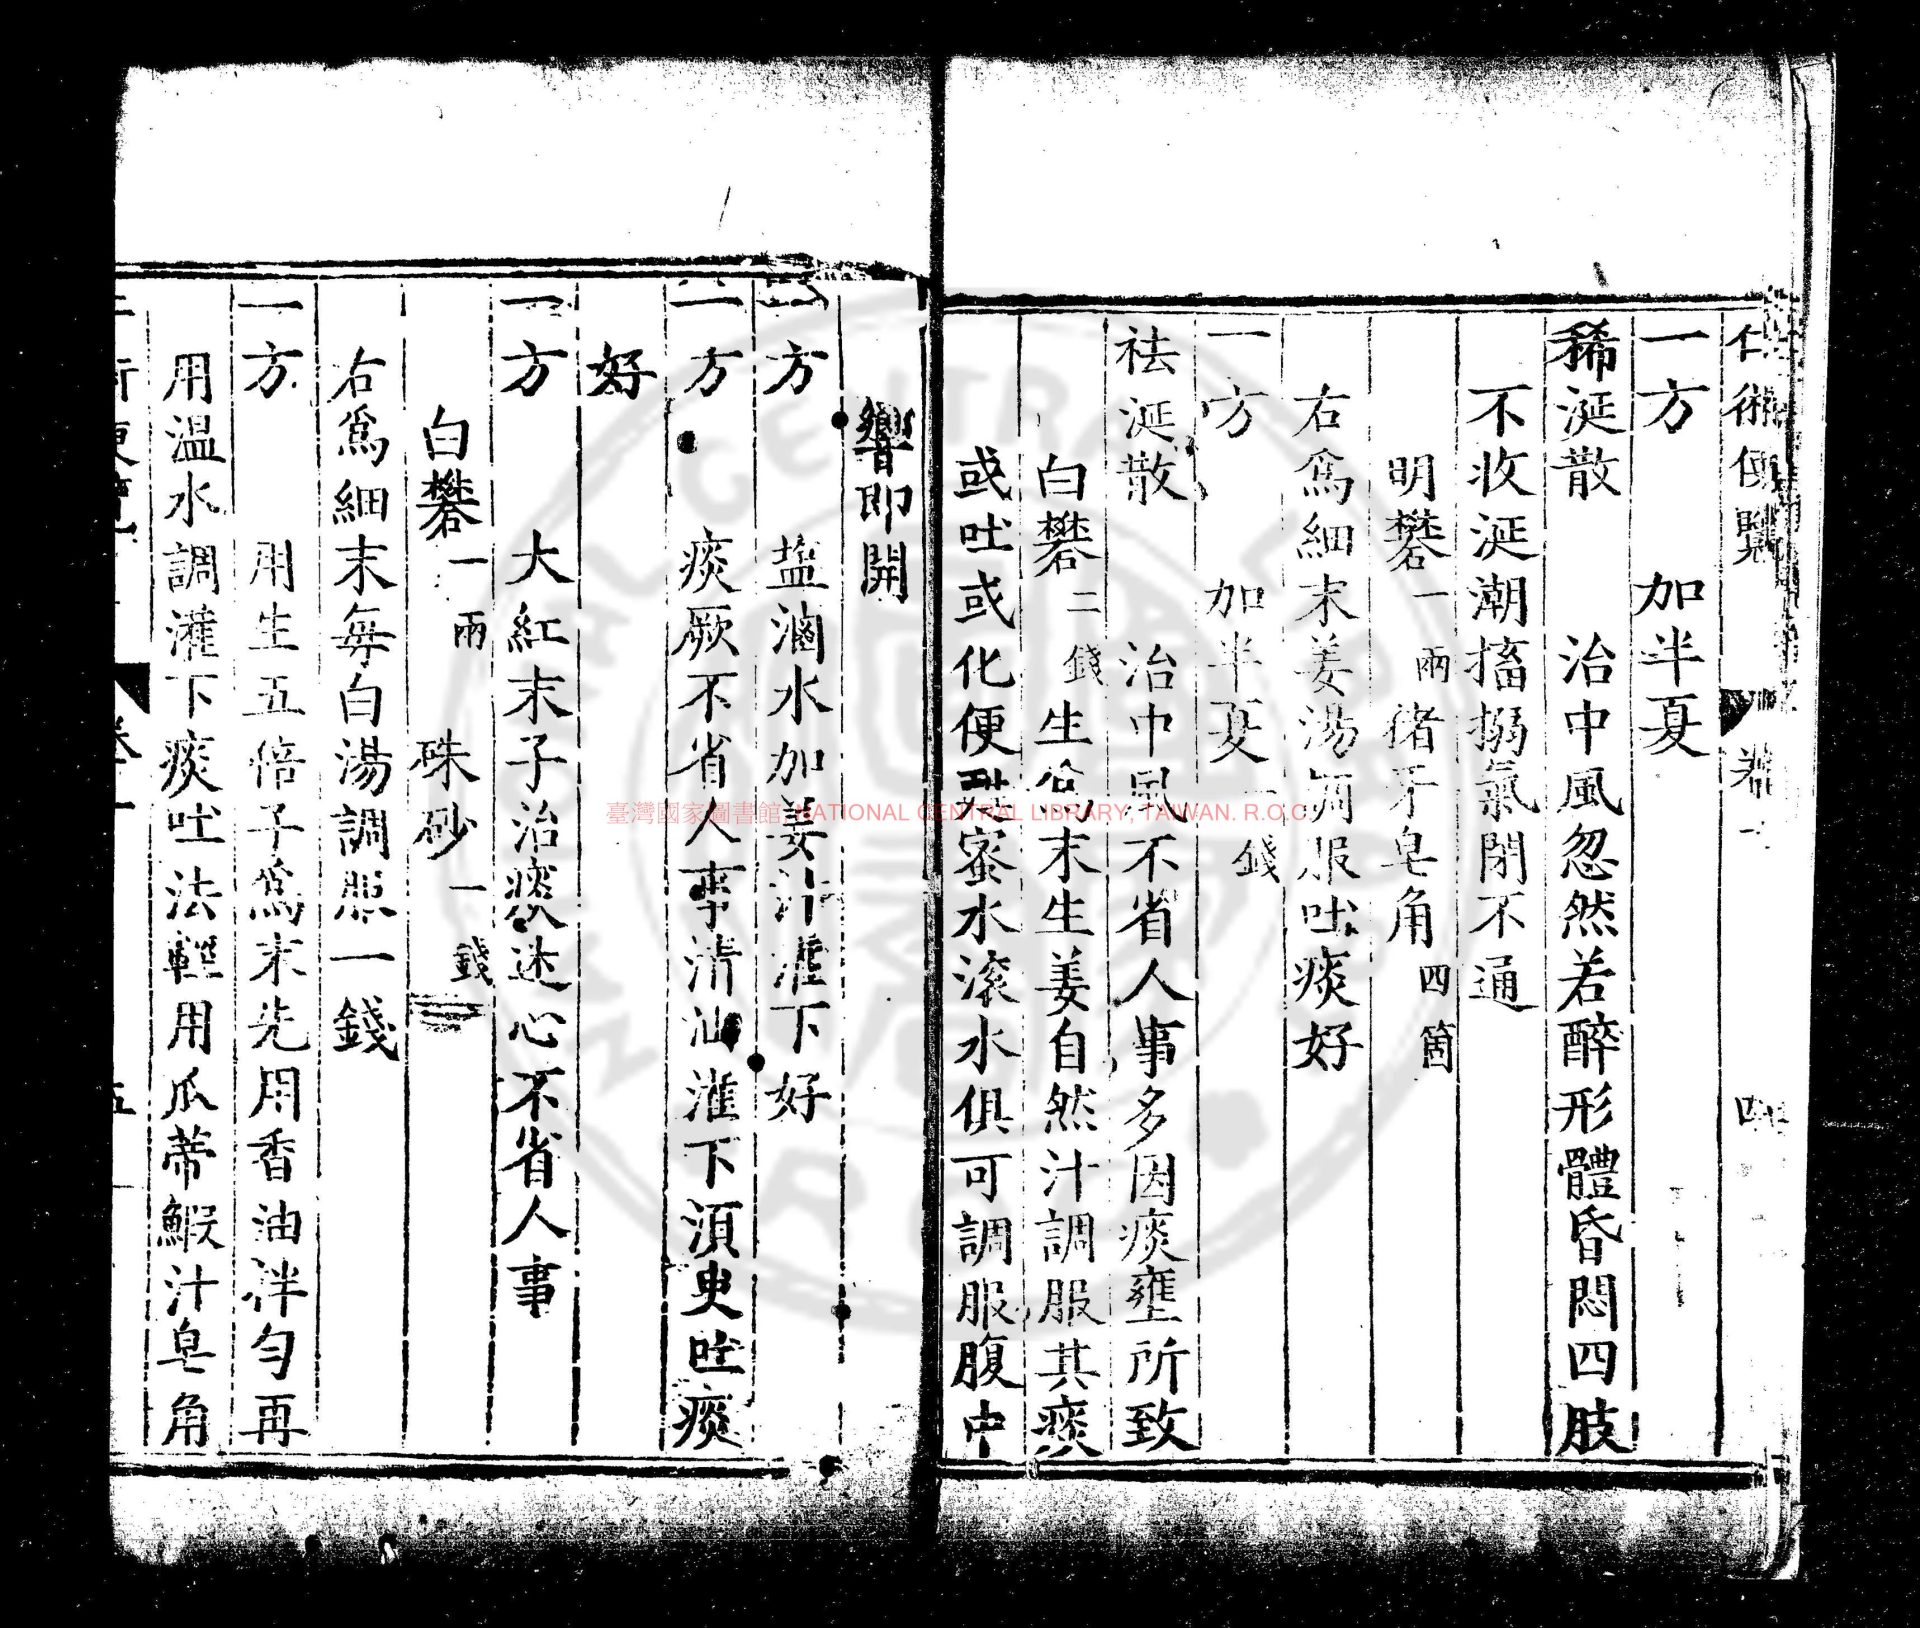 仁術便覽 卷一 四
一方 加半夏
稀涎散 治中風忽然若醉形體昏悶四肢
不收涎潮搐搦氣閉不通
明礬一兩 猪牙皂角四箇
右爲細末姜湯調服吐痰好
一方 加半夏一錢
袪涎散 治中風不省人事多因痰壅所致
白礬二錢 生爲末生姜自然汁調服其痰
或吐或化便 蜜水滚水俱可調服腹中
響即開
一方 盐滷水加姜汁灌下好
一方 痰厥不省人事清油灌下須臾吐痰
好
一方 大紅末子治痰迷心不省人事
白礬一兩 硃砂一錢
右爲細末每白湯調服一錢
一方 用生五倍子爲末先用香油拌勻再
用温水調灌下痰吐法輕用瓜蒂鰕汁皂角
卷一 五
臺灣國家圖書館 NATIONAL CENTRAL LIBRARY, TAIWAN. R.O.C.